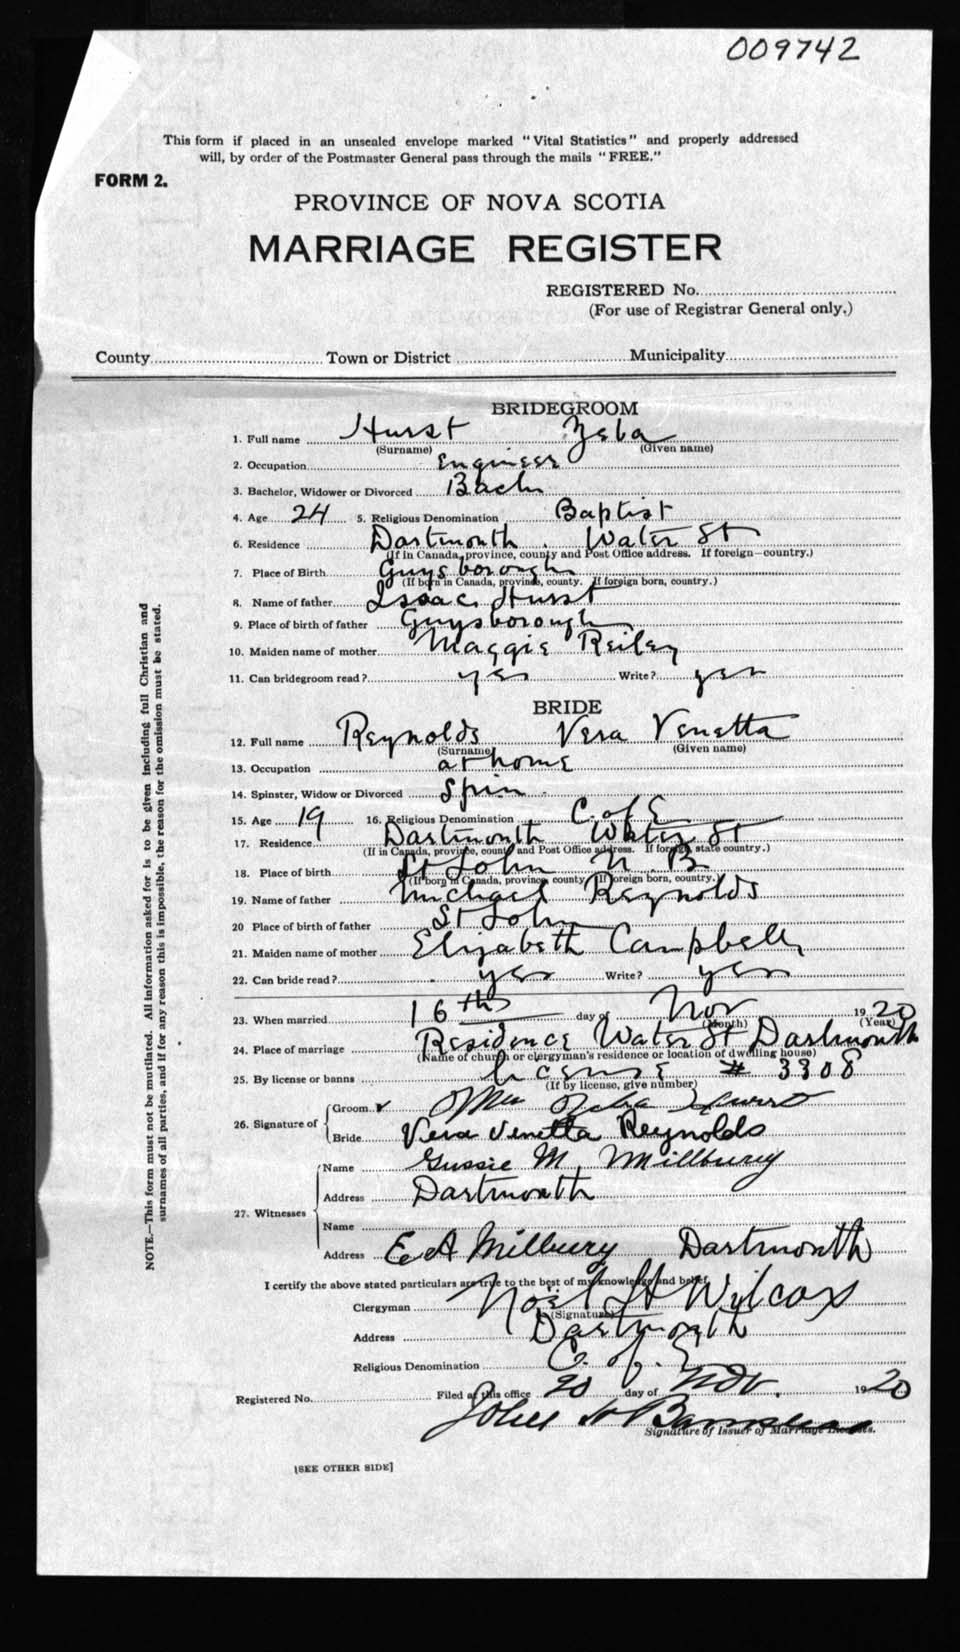 009742
This form if placed in an unsealed envelope marked "Vital Statistics" and properly addressed
will, by order of the Postmaster General pass through the mails "FREE."
FORM 2.
PROVINCE OF NOVA SCOTIA
MARRIAGE REGISTER
REGISTERED No.
(For use of Registrar General only.)
County Town or District Municipality
BRIDEGROOM
1. Full name Hurst Zeba
(Surname) (Given name)
2. Occupation Engineer
3. Bachelor, Widower or Divorced Bach
4. Age 24 5. Religious Denomination Baptist
6. Residence Dartmouth Water St
(If in Canada, province, county and Post Office address. If foreign—country.)
7. Place of Birth Guysborough
(If born in Canada, province, county. If foreign born, country.)
8. Name of father Isaac Hurst
9. Place of birth of father Guysborough
10. Maiden name of mother Maggie Reiley
11. Can bridegroom read? yes Write? yes
BRIDE
12. Full name Reynolds Vera Venetta
(Surname) (Given name)
13. Occupation at home
14. Spinster, Widow or Divorced Spin
15. Age 19 16. Religious Denomination C. of E
17. Residence Dartmouth Water St
(If in Canada, province, county and Post Office address. If foreign, state country.)
18. Place of birth St John N. B
(If born in Canada, province, county. If foreign born, country.)
19. Name of father Michael Reynolds
20 Place of birth of father St John
21. Maiden name of mother Elizabeth Campbell
22. Can bride read? yes Write? yes
23. When married 16th day of Nov 1920
(Month) (Year)
24. Place of marriage Residence Water St Dartmouth
(Name of church or clergyman's residence or location of dwelling house)
25. By license or banns license # 3308
(If by license, give number)
26. Signature of Groom Zeba Hurst
Bride Vera Venetta Reynolds
27. Witnesses Name Gussie M. Millbury
Address Dartmouth
Name
Address E A Milbury Dartmouth
I certify the above stated particulars are true to the best of my knowledge and belief,
Clergyman Noel H Wilcox
(Signature)
Address Dartmouth
Religious Denomination C. of. E
Registered No. Filed at this office 20 day of Nov. 1920
John
Signature of Issuer of Marriage Licenses.
[SEE OTHER SIDE]
NOTE.—This form must not be mutilated. All information asked for is to be given including full Christian and
surnames of all parties, and if for any reason this is impossible, the reason for the omission must be stated.